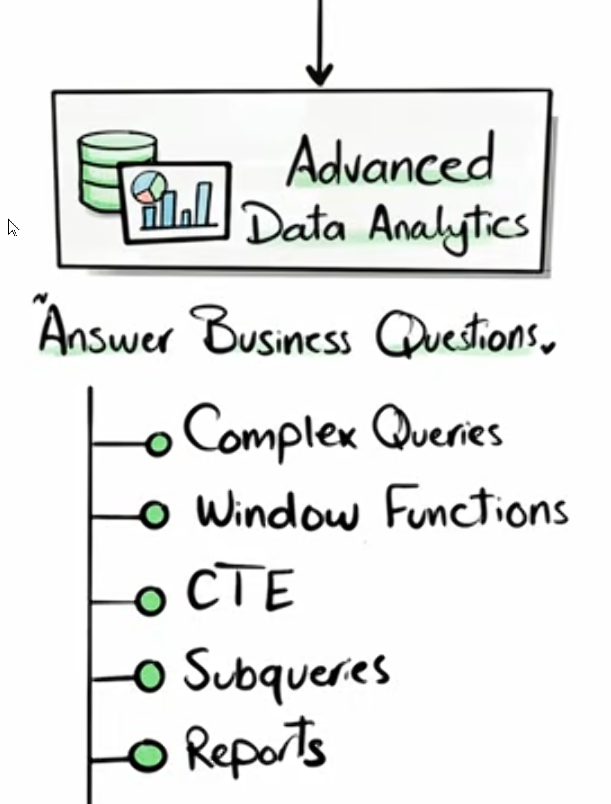 Advanced
Data Analytics
"Answer Business Questions"
Complex Queries
Window Functions
CTE
Subqueries
Reports